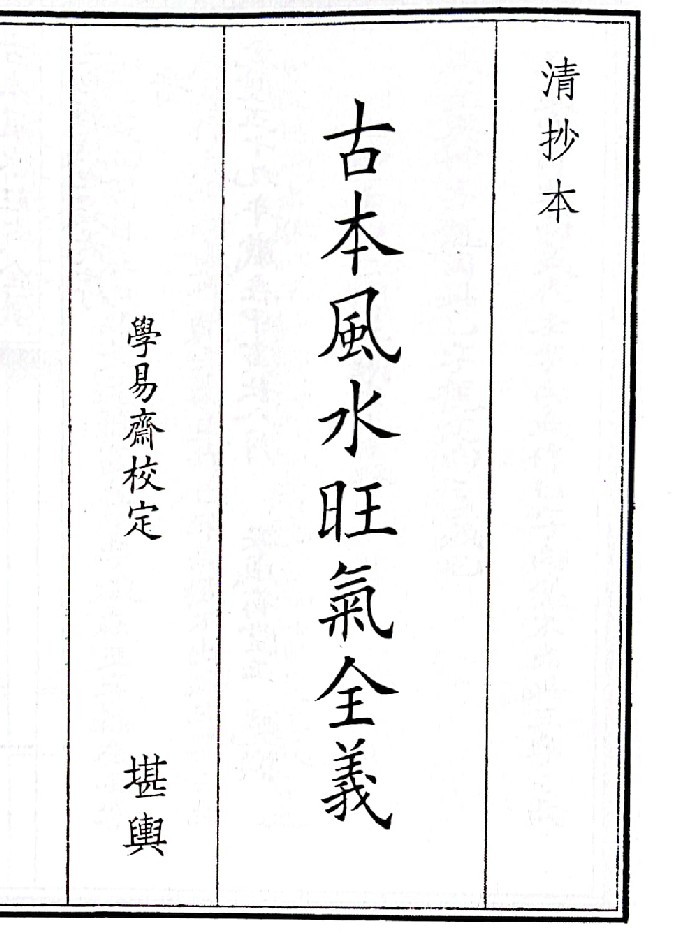 清抄本
古本風水旺氣全義
學易齋校定
堪輿